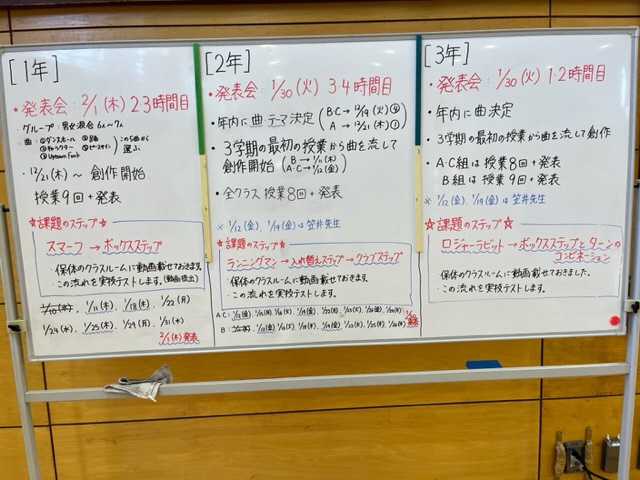 [1年]
・発表会: 2/1(木) 2・3時間目
・グループ:男女混合 6人〜7人
・12/21(木)〜 創作開始
授業9回+発表
☆課題のステップ☆
スマーフ → ボックスステップ
・保体のクラスルームに動画載せておきます。
・この流れを実技テストします。(動画提出)
1/10(水)、1/11(木)、1/18(木)、1/22(月)
1/24(水)、1/25(木)、1/29(月)、1/31(水)
2/1(木)発表
[2年]
・発表会: 1/30(火) 3・4時間目
・年内に曲テーマ決定 (B・C→12/19(火)④
A → 12/21(木)①)
・3学期の最初の授業から曲を流して
創作開始 (B → 1/11(木)
A・C→1/12(金))
・全クラス 授業8回+発表
※ 1/12(金)、1/19(金)は笠井先生
☆課題のステップ☆
ランニングマン→入れ替えステップ→クラブステップ
・保体のクラスルームに動画載せておきます。
・この流れを実技テストします。
A・C:
B:
発表
[3年]
・発表会: 1/30(火) 1・2時間目
・年内に曲決定
・3学期の最初の授業から曲を流して創作
・A・C組は授業8回+発表
B組は授業9回+発表
※ 1/12(金)、1/19(金)は笠井先生
☆課題のステップ☆
ロジャーラビット→ボックスステップとターンの
コンビネーション
・保体のクラスルームに動画載せておきました。
・この流れを実技テストします。